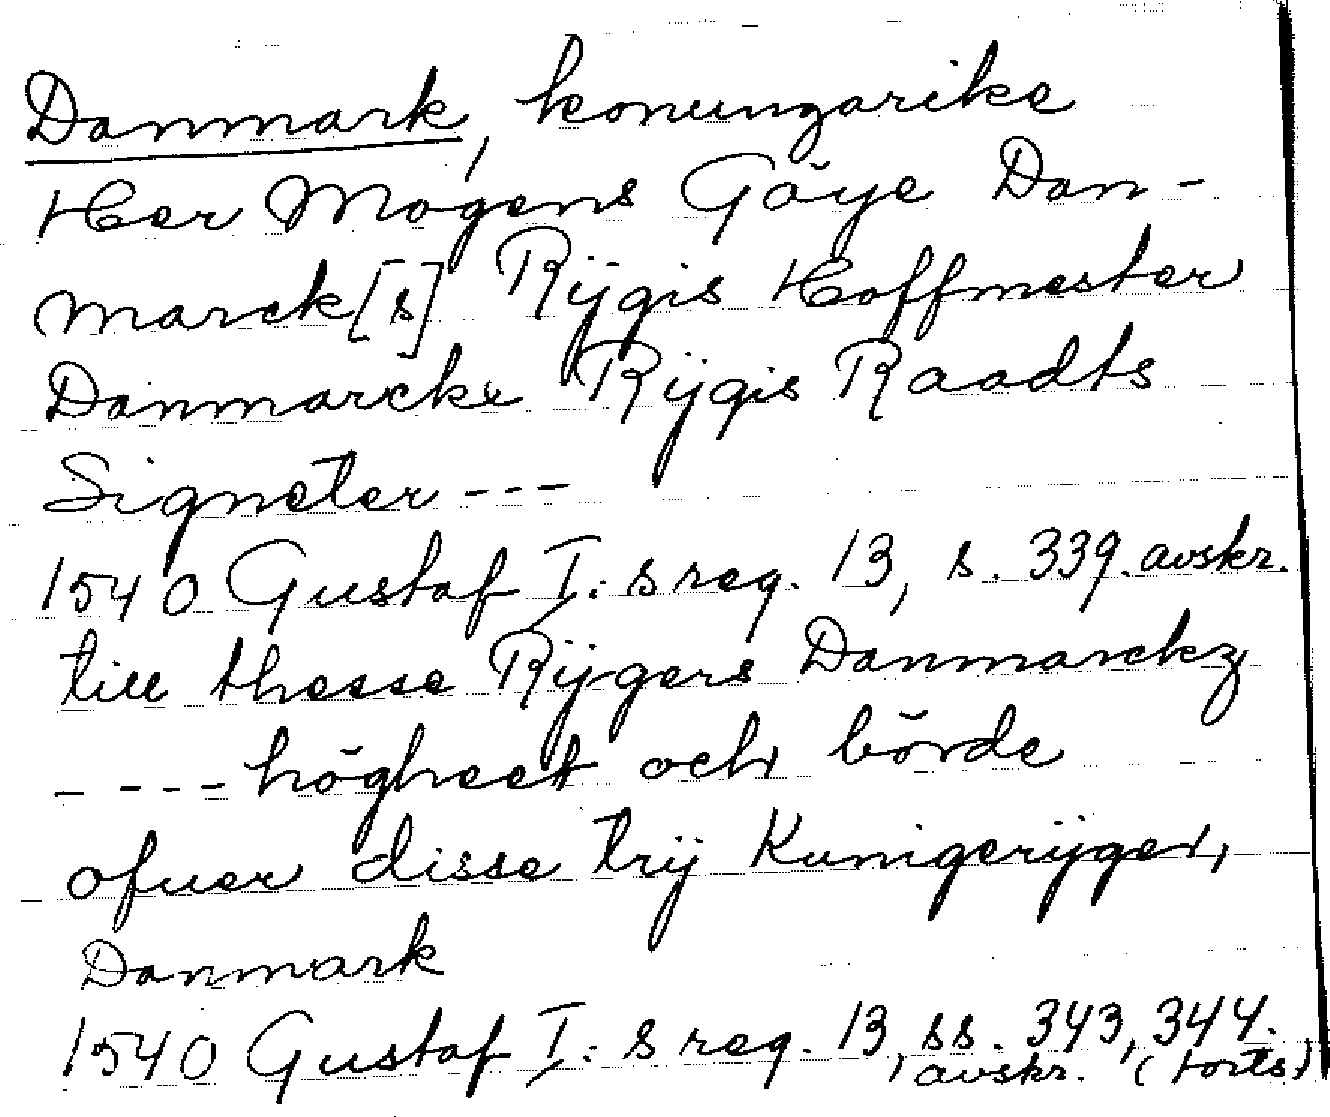 Danmark, konungarike
Her Mogens Göye Dan-
marck[s] Rÿgis Hoffmester
Danmarcks Rÿgis Raadts
Signeter ---
1540 Gustaf I:s reg. 13, s. 339. avskr.
till thesse Rÿgers Danmarckz
---- högheet och börde
ofuer disse trÿ Kunigerÿger,
Danmark
1540 Gustaf I:s reg. 13, ss. 343, 344.
avskr. (forts)